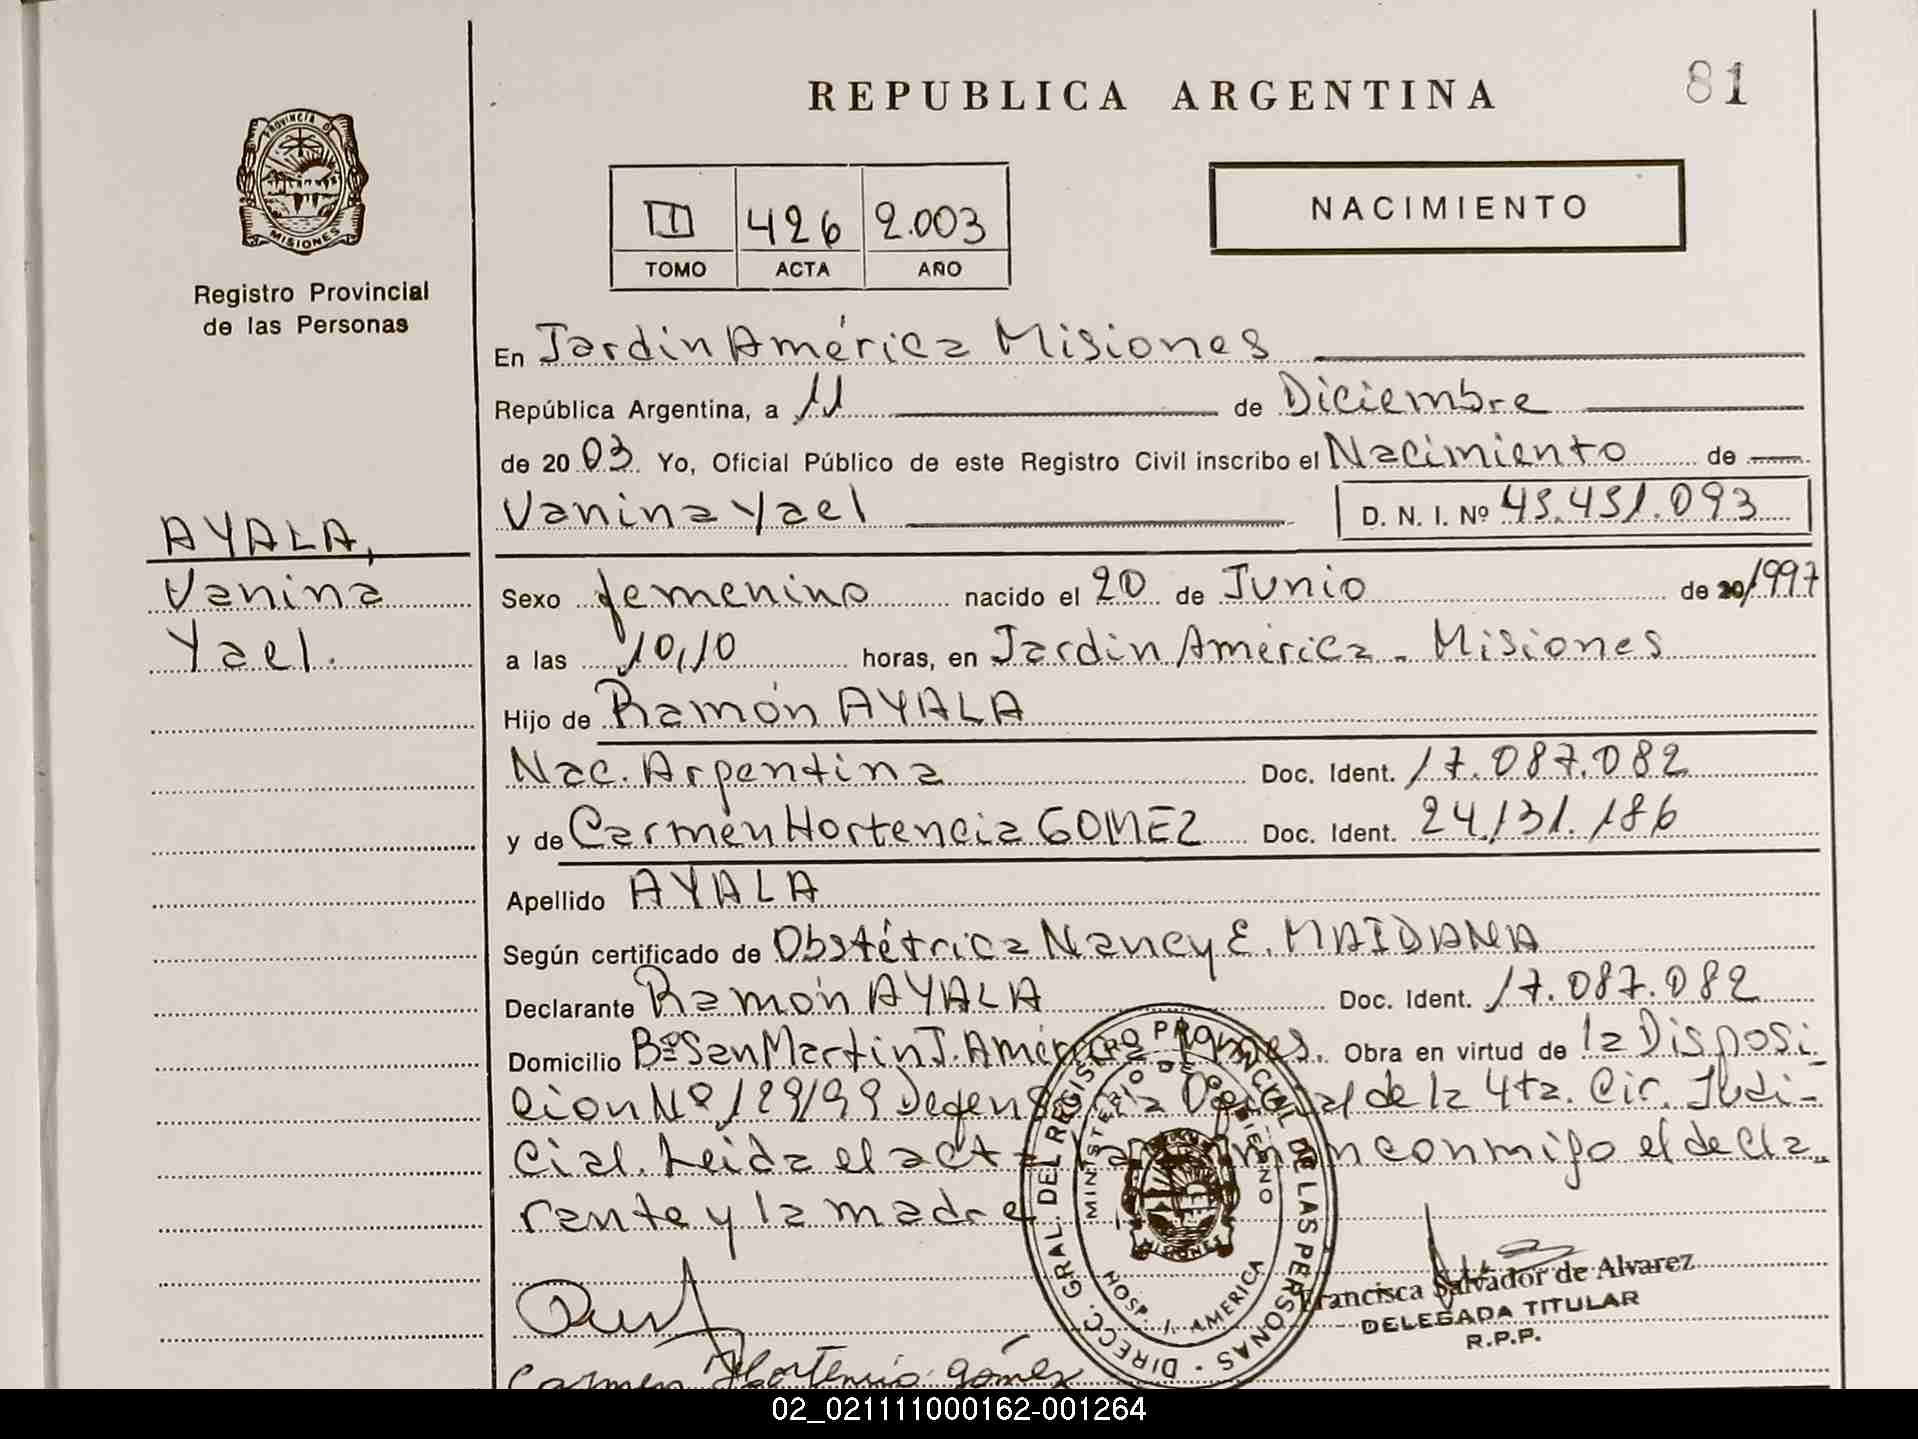 REPUBLICA ARGENTINA
81
PROVINCIA DE
MISIONES
Registro Provincial
de las Personas
II 426 2.003
TOMO ACTA AÑO
NACIMIENTO
En Jardin América Misiones
República Argentina, a 11 de Diciembre
de 2003 Yo, Oficial Público de este Registro Civil inscribo el Nacimiento de
Vanina Yael
D. N. I. Nº 43.431.093
AYALA,
Vanina
Yael.
Sexo femenino nacido el 20 de Junio de 1997
a las 10,10 horas, en Jardin América - Misiones
Hijo de Ramón AYALA
Nac. Argentina Doc. Ident. 17.087.082
y de Carmen Hortencia GOMEZ Doc. Ident. 24.131.186
Apellido AYALA
Según certificado de Obstétrica Nancy E. MAIDANA
Declarante Ramón AYALA Doc. Ident. 17.087.082
Domicilio Bº San Martin J. América Misiones. Obra en virtud de la Disposi-
cion Nº 129/99 Defensoria de la 4ta. Cir. Judi-
cial. Leida el acta la firman conmigo el decla-
rante y la madre
DIRECC. GRAL DEL REGISTRO PROVINCIAL DE LAS PERSONAS
MINISTERIO DE GOBIERNO
MISIONES
HOSP. J. AMERICA
Francisca Salvador de Alvarez
DELEGADA TITULAR
R.P.P.
Carmen Hortencia Gómez
02_021111000162-001264